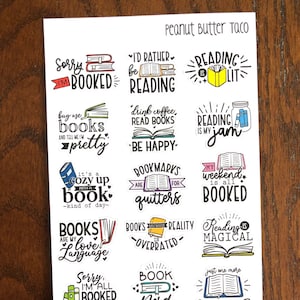 Peanut Butter Taco
Sorry,
I'M
BOOKED
I'D RATHER
be
READING
READING
IS
LIT
buy me
BOOKS
AND TELL ME I'M
pretty
drink coffee
READ BOOKS
BE HAPPY
READING
IS MY jam
it's a
COZY UP
WITH A
book
kind of day
BOOKMARKS
ARE FOR
quitters
my
weekend
is all
BOOKED
BOOKS
ARE MY love
Language
BOOKS
REALITY
OVERRATED
Reading
is
MAGICAL
Sorry,
I'M ALL
BOOKED
BOOK
just one more